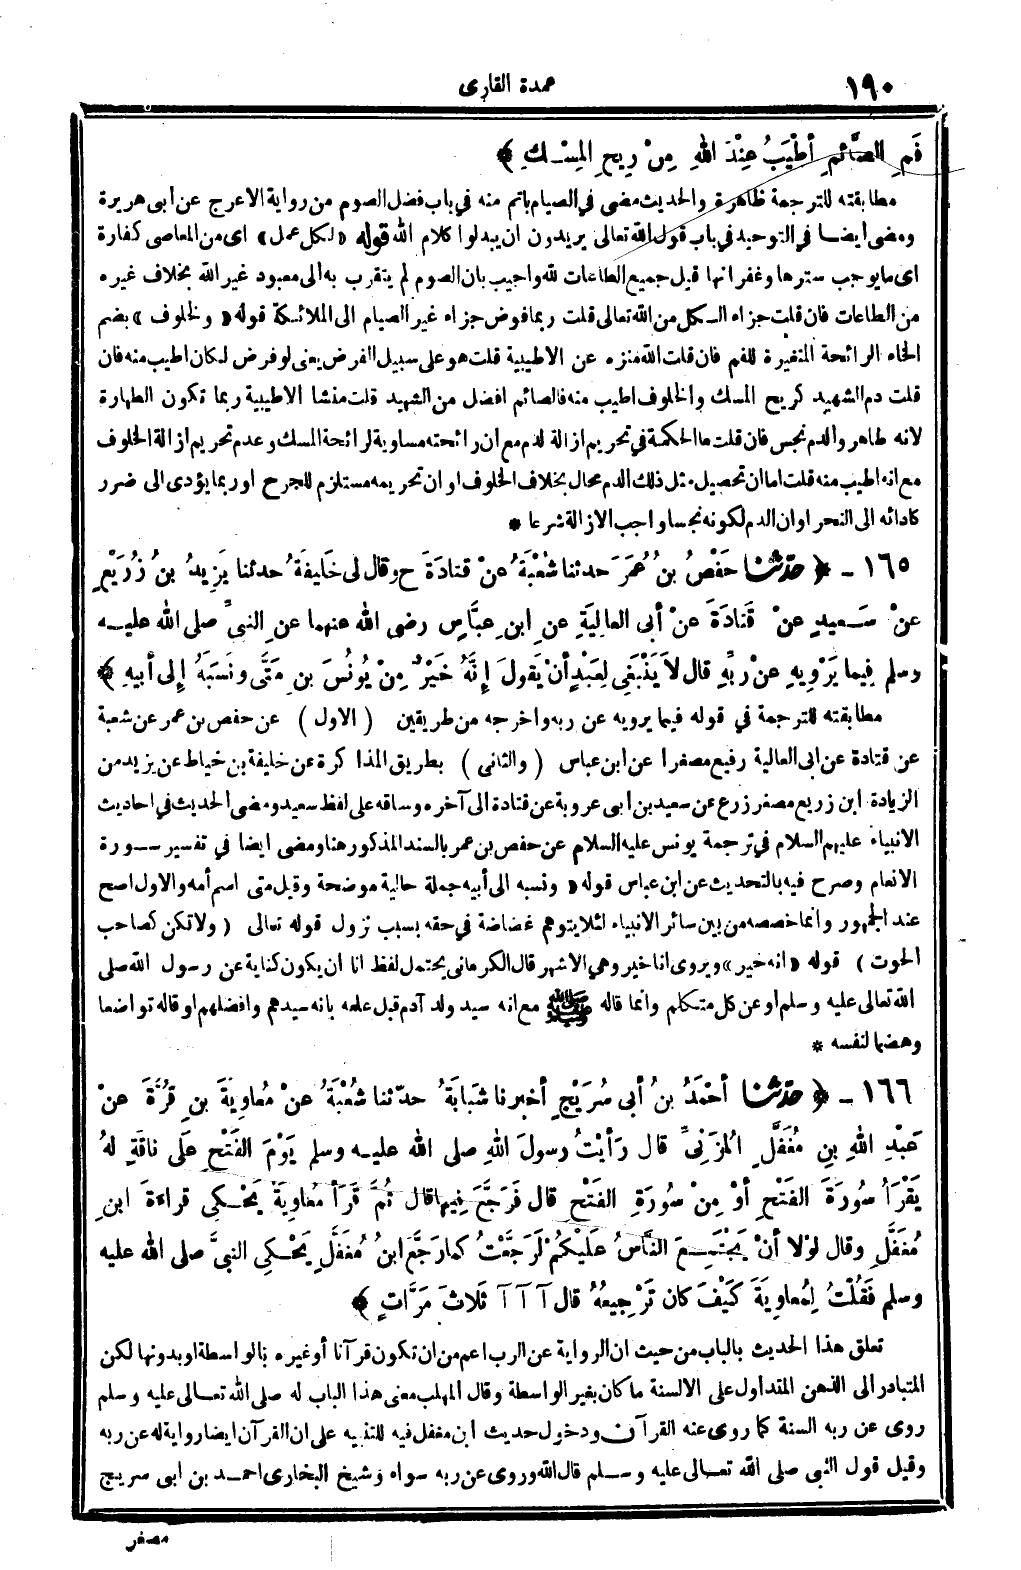 ١٩٠
عمدة القارى
فَمِ الصَّائِمِ أطْيَبُ عِنْدَ اللهِ مِنْ رِيحِ المِسْكِ ﴾
مطابقته للترجمة ظاهرة والحديث مضى في الصيام باتم منه في باب فضل الصوم من رواية الاعرج عن ابى هريرة
ومضى أيضا في التوحيد في باب قول الله تعالى يريدون ان يبدلوا كلام الله قوله «لكل عمل» اى من المعاصى كفارة
اى ما يوجب سترها وغفرانها قبل جميع الطاعات لله واجيب بان الصوم لم يتقرب به الى معبود غير الله بخلاف غيره
من الطاعات فان قلت جزاء الكل من الله تعالى قلت ربما فوض جزاء غير الصيام الى الملائكة قوله «ولخلوف» بضم
الخاء الرائحة المتغيرة للفم فان قلت الله منزه عن الاطيبية قلت هو على سبيل الفرض يعنى لو فرض لكان اطيب منه فان
قلت دم الشهيد كريح المسك والخلوف اطيب منه فالصائم افضل من الشهيد قلت منشا الاطيبية ربما تكون الطهارة
لانه طاهر والدم نجس فان قلت ما الحكمة في تحريم ازالة لدم مع ان رائحته مساوية لرائحة المسك وعدم تحريم ازالة الخلوف
مع انه اطيب منه قلت اما ان تحصيل مثل ذلك الدم محال بخلاف الخلوف او ان تحريمه مستلزم للجرح او ربما يؤدى الى ضرر
كادائه الى النحر او ان الدم لكونه نجسا واجب الازالة شرعا *
١٦٥ - ﴿ حَدَّثَنَا حَفْصُ بنُ عُمَرَ حدثنا شُعْبَةُ عنْ قتادَةَ ح وقال لى خَلِيفَةُ حدثنا يَزِيدُ بنُ زُرَيْعٍ
عنْ سَعِيدٍ عنْ قَتادَةَ عنْ أبى العالِيَةِ عنِ ابنِ عبَّاسٍ رضى الله عنهما عنِ النبىِّ صلى الله عليه
وسلم فِيما يَرْوِيهِ عنْ ربِّهِ قال لاَ يَنْبَغِى لِعَبْدٍ أنْ يَقولَ إنَّهُ خَيْرٌ مِنْ يُونُسَ بنِ مَتَّى ونَسَبَهُ إلى أبيهِ ﴾
مطابقته للترجمة في قوله فيما يرويه عن ربه واخرجه من طريقين ( الاول ) عن حفص بن عمر عن شعبة
عن قتادة عن ابى العالية رفيع مصغرا عن ابن عباس ( والثانى ) بطريق المذاكرة عن خليفة بن خياط عن يزيد من
الزيادة ابن زريع مصغر زرع عن سعيد بن ابى عروبة عن قتادة الى آخره وساقه على لفظ سعيد ومضى الحديث في احاديث
الانبياء عليهم السلام في ترجمة يونس عليه السلام عن حفص بن عمر بالسند المذكور هنا ومضى ايضا في تفسير سورة
الانعام وصرح فيه بالتحديث عن ابن عباس قوله «ونسبه الى أبيه جملة حالية موضحة وقيل متى اسم أمه والاول اصح
عند الجمهور وانما خصصه من بين سائر الانبياء لئلا يتوهم غضاضة في حقه بسبب نزول قوله تعالى ( ولا تكن كصاحب
الحوت ) قوله «انه خير» ويروى انا خير وهى الاشهر قال الكرمانى يحتمل لفظ انا ان يكون كناية عن رسول الله صلى
الله تعالى عليه وسلم او عن كل متكلم وانما قاله ﷺ مع انه سيد ولد آدم قبل علمه بانه سيدهم وافضلهم او قاله تواضعا
وهضما لنفسه *
١٦٦ - ﴿ حَدَّثَنَا أحْمَدُ بنُ أبى سُرَيْجٍ أخبرنا شَبابَةُ حدّثنا شُعْبَةُ عنْ مُعاوِيَةَ بنِ قُرَّةَ عنْ
عَبْدِ اللهِ بنِ مُغَفَّلٍ المُزَنِىِّ قال رَأيْتُ رسولَ اللهِ صلى الله عليه وسلم يَوْمَ الفَتْحِ عَلَى ناقَةٍ لهُ
يَقْرَأُ سُورَةَ الفَتْحِ أوْ مِنْ سُورَةِ الفَتْحِ قال فَرَجَّعَ فِيها قال ثُمَّ قَرَأَ مُعاوِيَةُ يَحْكِى قراءةَ ابنِ
مُغَفَّلٍ وقال لَوْلا أنْ يَجْتَمِعَ النَّاسُ عَلَيْكُمْ لَرَجَّعْتُ كما رَجَّعَ ابنُ مُغَفَّلٍ يَحْكِى النبىَّ صلى الله عليه
وسلم فَقُلْتُ لِمُعاوِيَةَ كَيْفَ كان تَرْجِيعُهُ قال آ آ آ ثَلاثَ مَرَّاتٍ ﴾
تعلق هذا الحديث بالباب من حيث ان الرواية عن الرب اعم من ان تكون قرآنا أو غيره بالواسطة او بدونها لكن
المتبادر الى الذهن المتداول على الالسنة ما كان بغير الواسطة وقال المهلب معنى هذا الباب له صلى الله تعالى عليه وسلم
روى عن ربه السنة كما روى عنه القرآن ودخول حديث ابن مغفل فيه للتنبيه على ان القرآن ايضا رواية له عن ربه
وقيل قول النبى صلى الله تعالى عليه وسلم قال الله وروى عن ربه سواه وشيخ البخارى احمد بن ابى سريج
مصغر